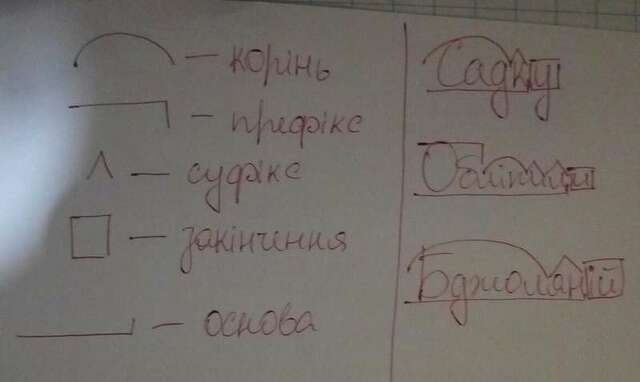 — корінь
— префікс
— суфікс
— закінчення
— основа
Садку
Бджоланій